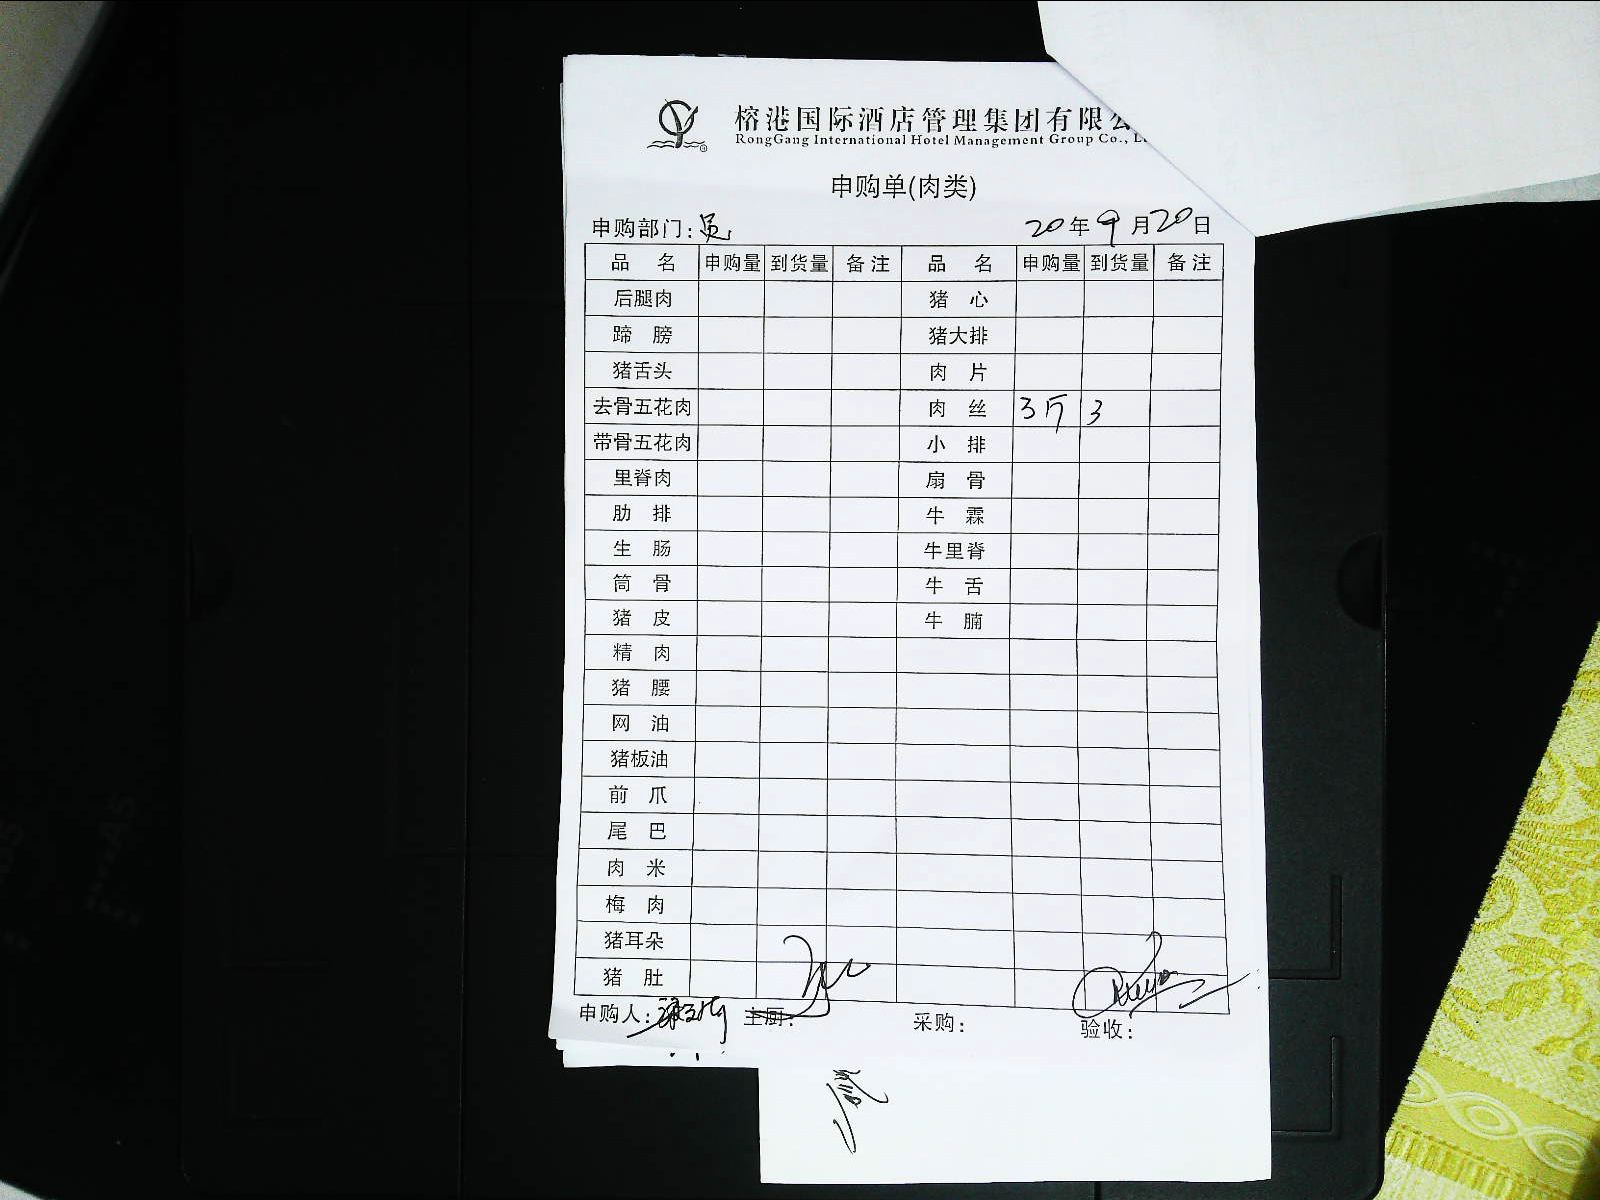 榕港国际酒店管理集团有限公
RongGang International Hotel Management Group Co., L
申购单(肉类)
申购部门: 员 20年9月20日
品 名 申购量 到货量 备注 品 名 申购量 到货量 备注
后腿肉 猪 心
蹄 膀 猪大排
猪舌头 肉 片
去骨五花肉 肉 丝 3斤 3
带骨五花肉 小 排
里脊肉 扇 骨
肋 排 牛 霖
生 肠 牛里脊
筒 骨 牛 舌
猪 皮 牛 腩
精 肉
猪 腰
网 油
猪板油
前 爪
尾 巴
肉 米
梅 肉
猪耳朵
猪 肚
申购人: 主厨: 采购: 验收: